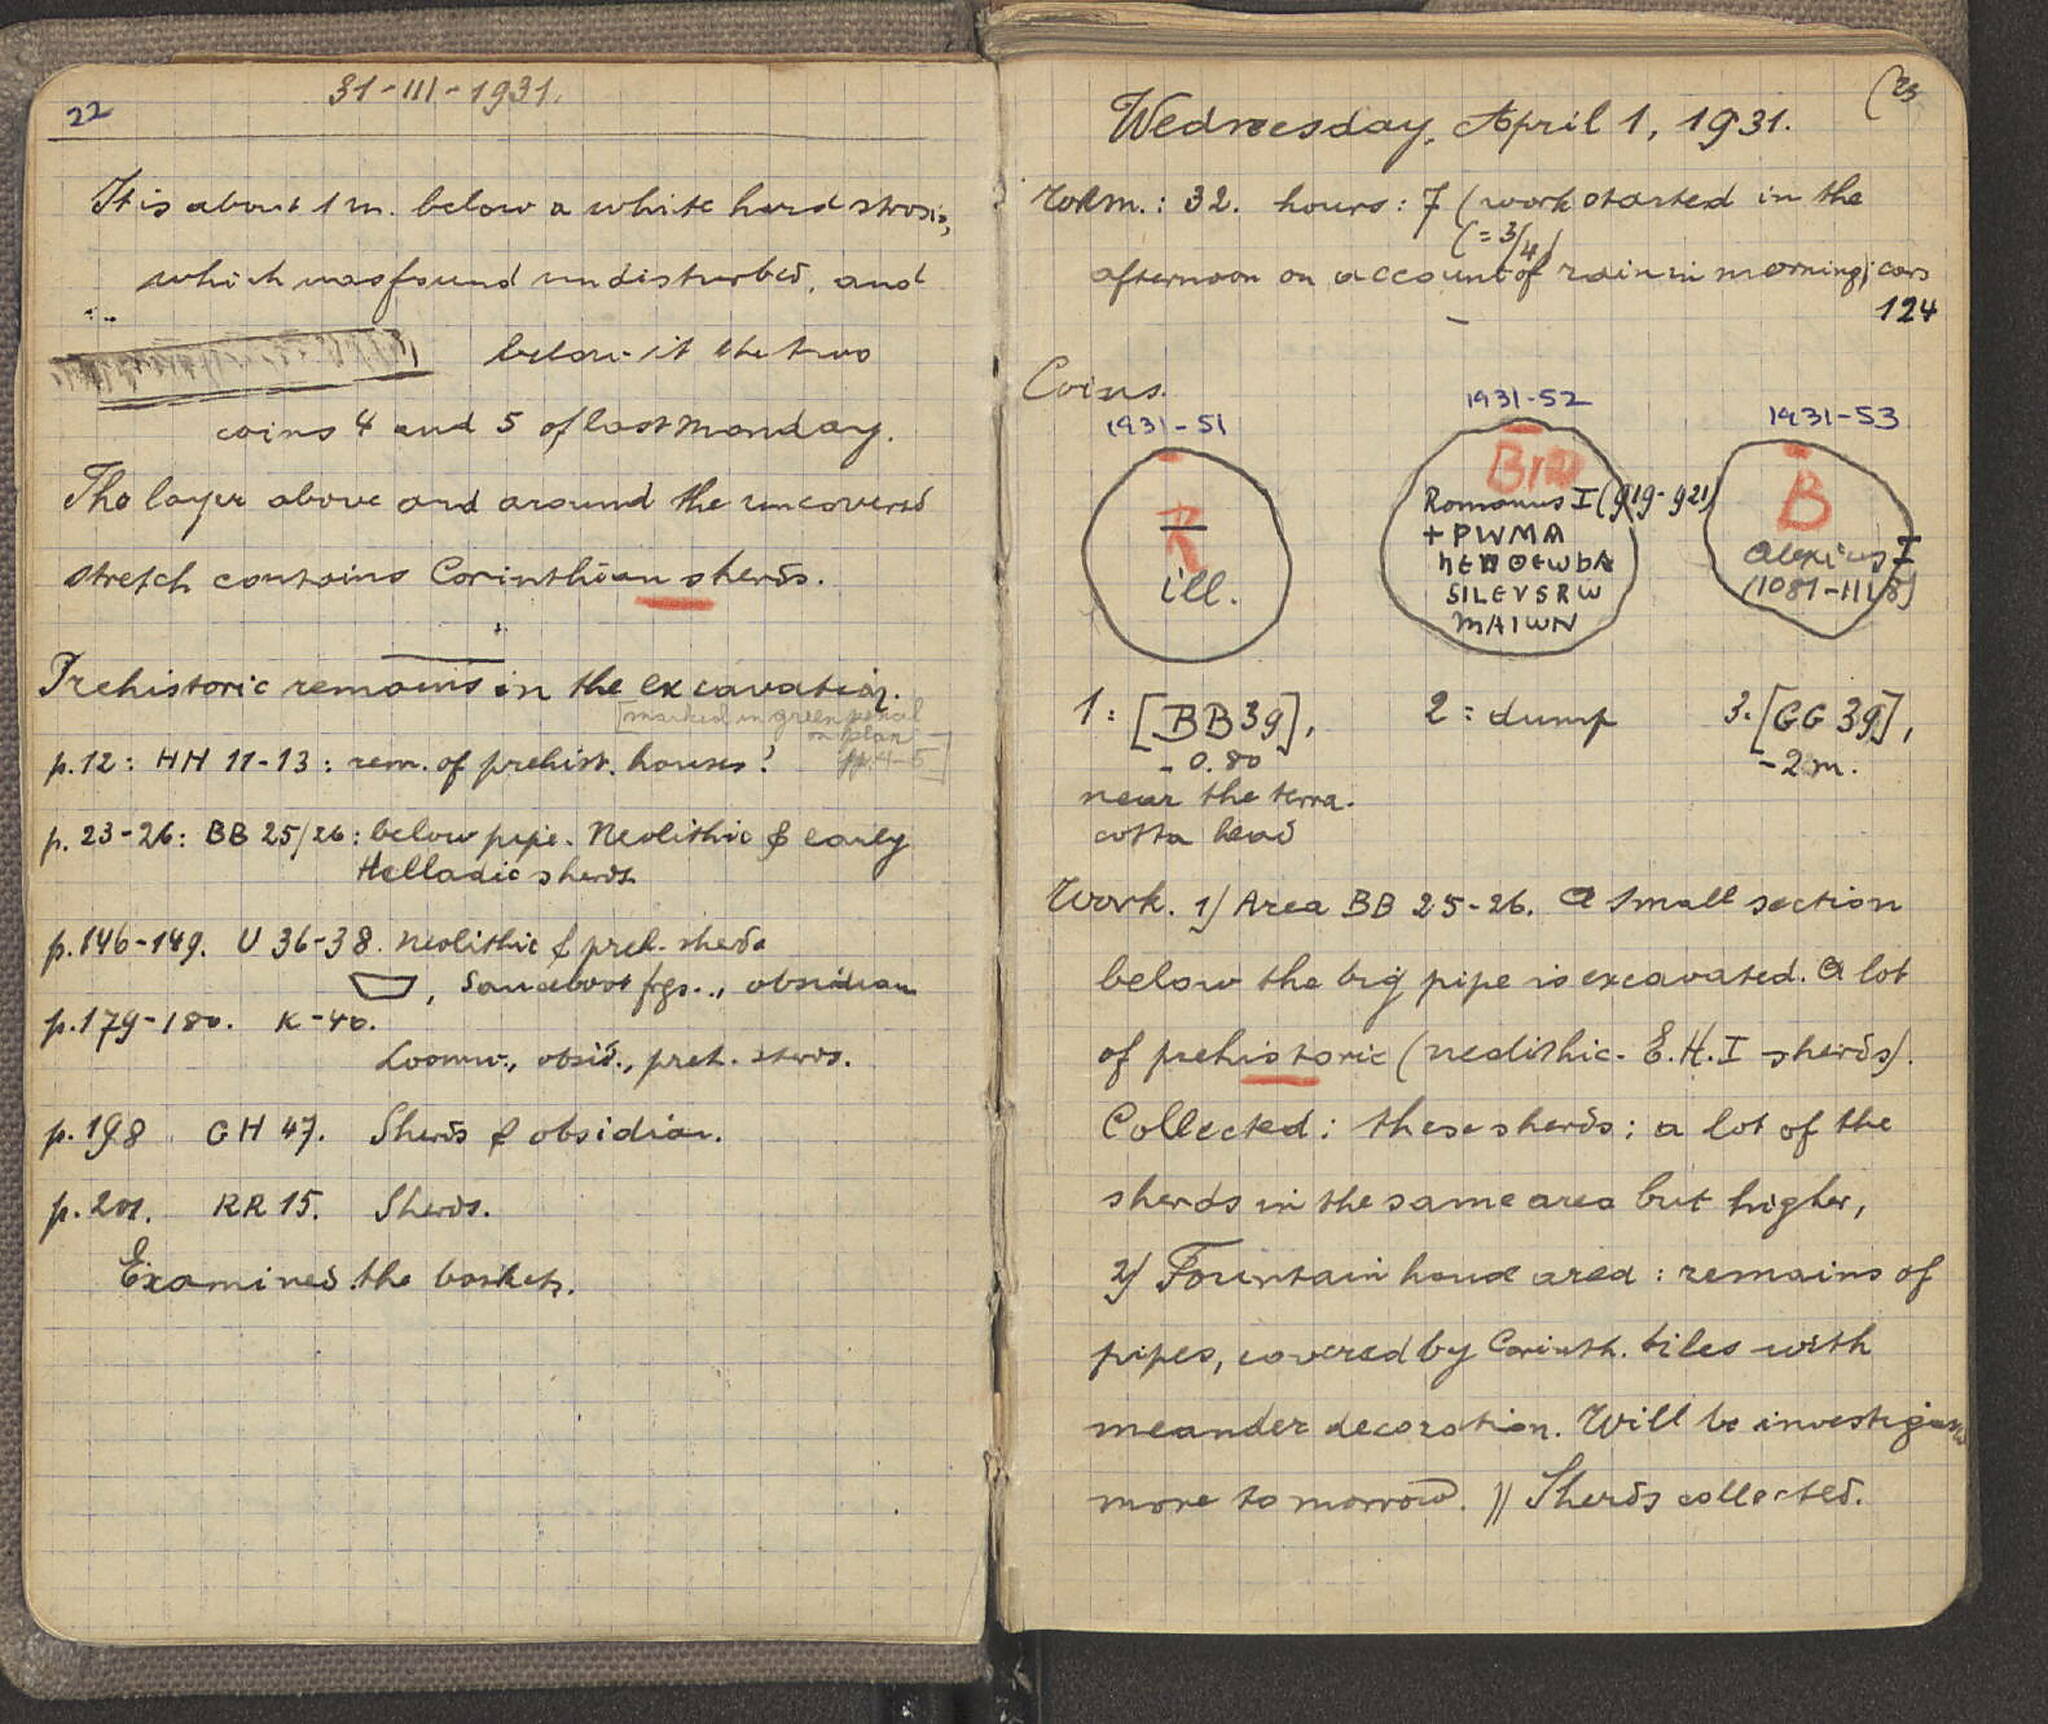 22
31-III-1931.
It is about 1 m. below a white hard strosis,
which was found undisturbed, and
below it the two
coins 4 and 5 of last Monday.
The layer above and around the uncovered
stretch contains Corinthian sherds.
Prehistoric remains in the excavation.
[marked in green pencil
on plan
pp. 4-5]
p. 12: HH 11-13: rem. of prehist. houses!
p. 23-26: BB 25/26: below pipe. Neolithic & early
Helladic sherds
p. 146-149. U 36-38. neolithic & preh. sherds
, Sauceboat frgs.., obsidian
p. 179-180. K-40.
Loomw., obsid., preh. sherds.
p. 198 GH 47. Sherds & obsidian.
p. 201. RR 15. Sherds.
Examined the baskets.
(23
Wednesday, April 1, 1931.
Workm.: 32. hours: 7 (work started in the
(= 3/4)
afternoon on account of rain in morning; cars
124
Coins.
1931-51
1931-52
1931-53
R
ill.
Romanus I (919-921)
+ PWMA
hENΘEWbA
SILEVSRW
MAIWN
B
Alexius I
(1081-1118)
1: [BB 39],
-0.80
near the terra-
cotta head
2 = dump
3. [GG 39],
-2 m.
Work. 1) Area BB 25-26. A small section
below the big pipe is excavated. A lot
of prehistoric (neolithic- E.H.I sherds).
Collected: these sherds; a lot of the
sherds in the same area but higher,
2) Fountain house area: remains of
pipes, covered by Corinth. tiles with
meander decoration. Will be investigated
more to morrow. || Sherds collected.